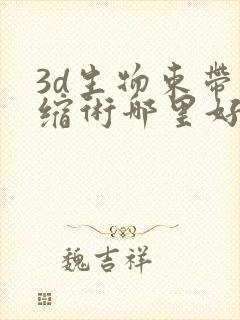 3d生物束带
缩術哪里好
魏吉祥